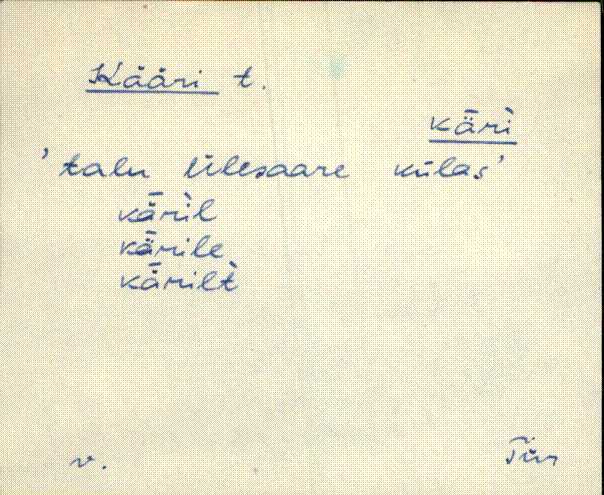 Kääri t.
kǟrì
'talu Ülesaare külas'
kǟrìl
kǟrile
kǟrilt̀
v. Tür